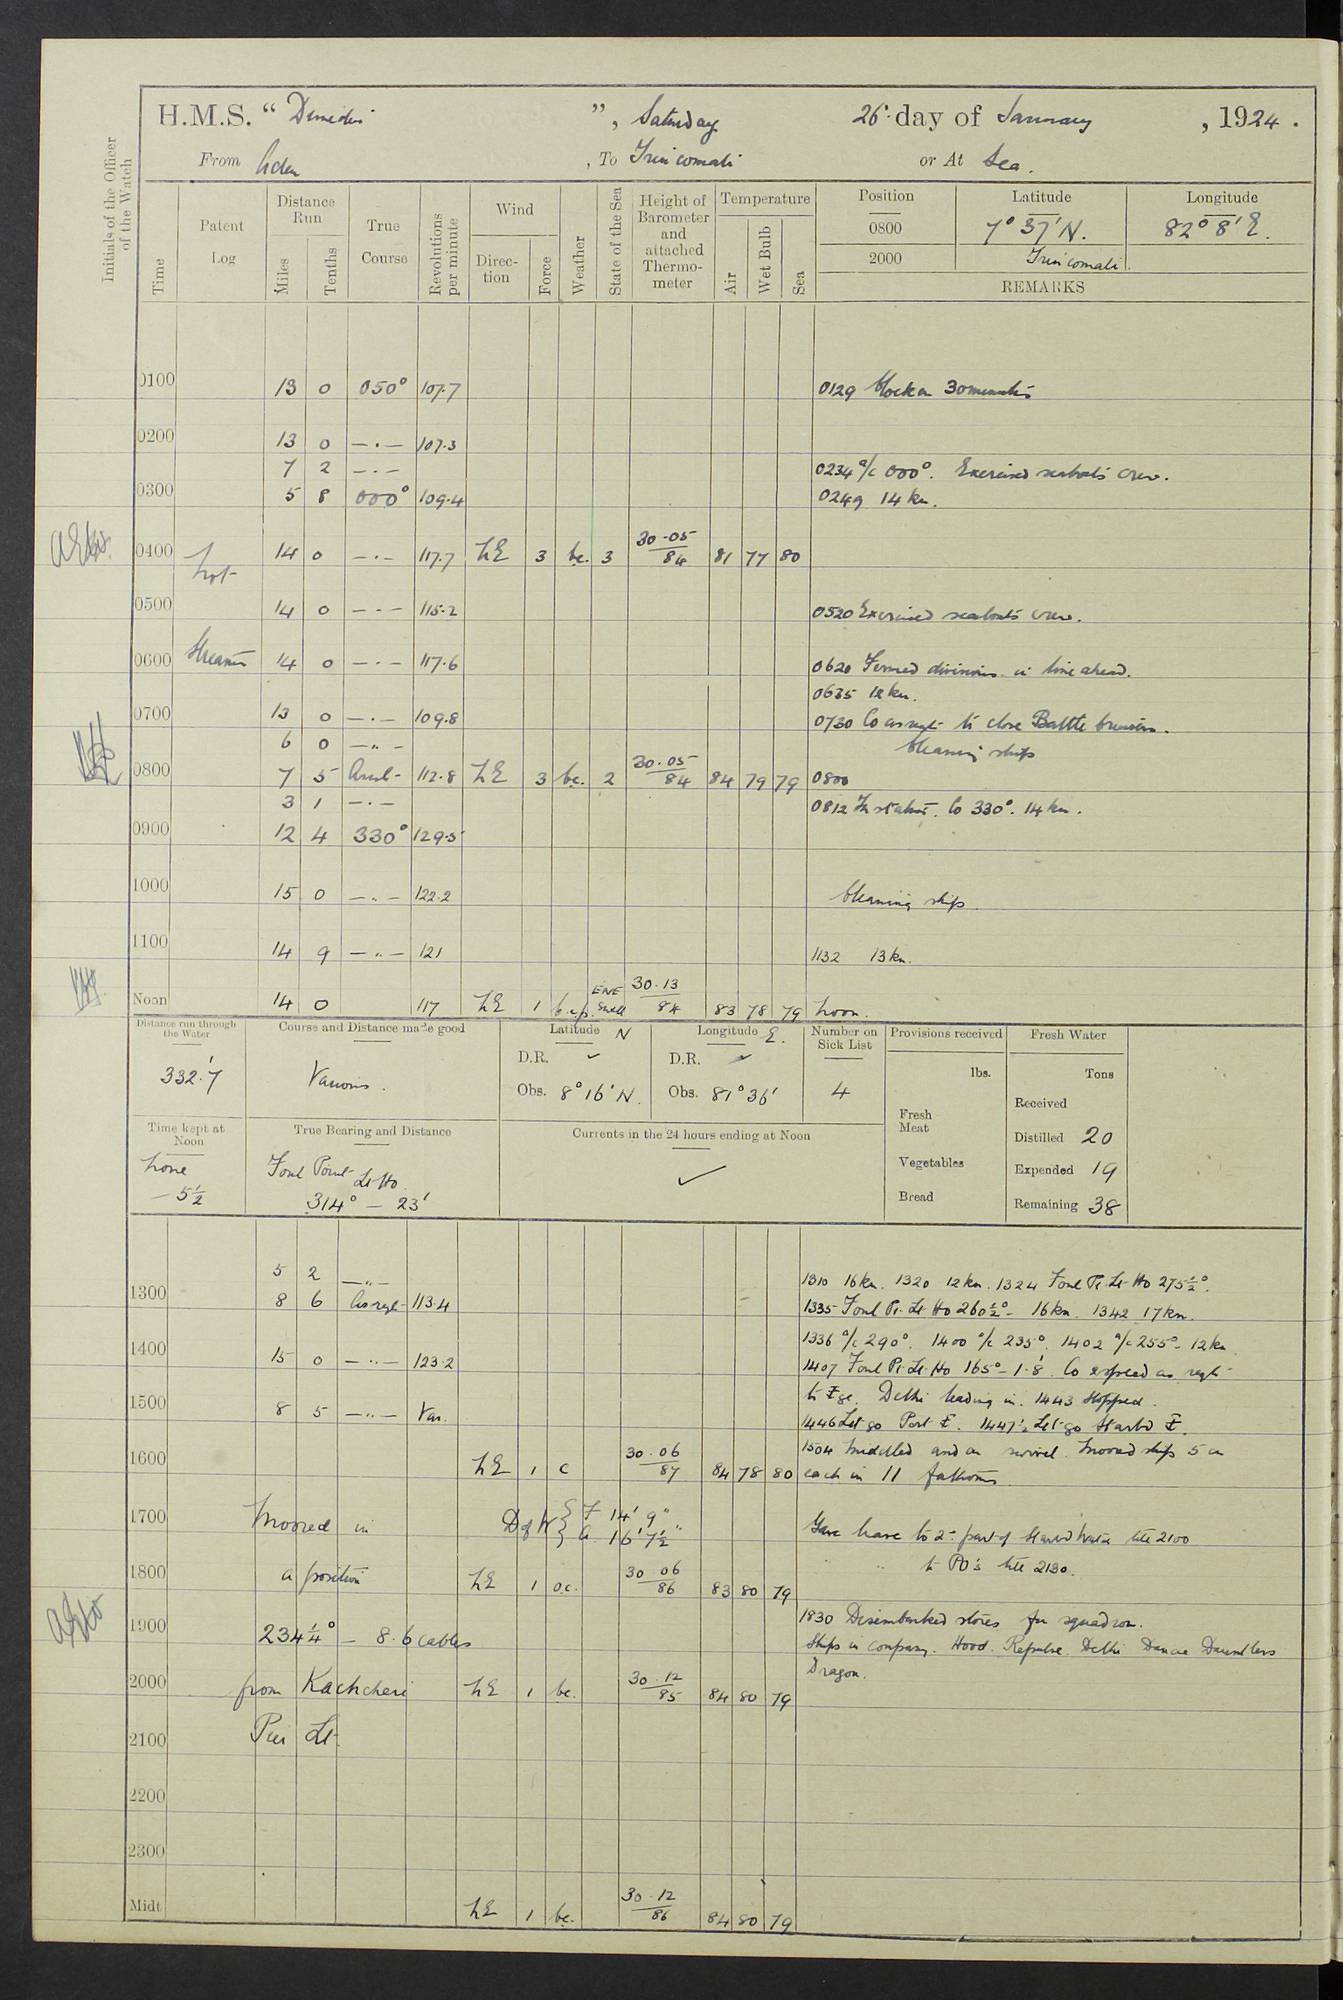 H.M.S. “ Dunedin ”, Saturday 26 day of January, 1924.
From Aden, To Trincomali or At Sea.
Initials of the Officer of the Watch
Time
Patent Log
Distance Run
Miles
Tenths
True Course
Revolutions per minute
Wind
Direction
Force
Weather
State of the Sea
Height of Barometer and attached Thermometer
Temperature
Air
Wet Bulb
Sea
Position Latitude Longitude
0800 7° 37' N. 82° 8' E.
2000 Trincomali.
REMARKS
0100 13 0 050° 107.7 0129 Clock on 30 minutes
0200 13 0 —·— 107.3
7 2 —·— 0234 a/c 000°. Exercised seaboats crew.
0300 5 8 000° 109.4 0249 14 kn.
0400 Not 14 0 —·— 117.7 NE 3 bc. 3 30.05 84 81 77 80
0500 14 0 —·— 115.2 0520 Exercised seaboats crew.
0600 Streamed 14 0 —·— 117.6 0620 Formed divisions in line ahead.
0635 12 kn.
0700 13 0 —·— 109.8 0730 Co as reqt to close Battle Cruisers.
6 0 —"— Cleaning ship
0800 7 5 112.8 NE 3 bc. 2 30.05 84 84 79 79 0800
3 1 —·— 0812 In station. Co 330°. 14 kn.
0900 12 4 330° 129.5
1000 15 0 —"— 122.2 Cleaning ship.
1100 14 9 —"— 121 1132 13 kn.
Noon 14 0 117 NE 1 b.c.p. ENE Swell 30.13 84 83 78 79 Noon.
Distance run through the Water
332.7'
Course and Distance made good
Various.
Latitude N
D.R. ✓
Obs. 8° 16' N.
Longitude E.
D.R. ✓
Obs. 81° 36'
Number on Sick List
4
Provisions received
lbs.
Fresh Meat
Vegetables
Bread
Fresh Water
Tons
Received
Distilled 20
Expended 19
Remaining 38
Time kept at Noon
Zone
— 5½
True Bearing and Distance
Foul Point Lt Ho.
314° — 23'
Currents in the 24 hours ending at Noon
✓
5 2 —"— 1310 16 kn. 1320 12 kn. 1324 Foul Pt. Lt. Ho 275½°.
1300 8 6 As reqt 113.4 1335 Foul Pt. Lt. Ho 260½° — 16 kn. 1342 17 kn.
1336 a/c 290°. 1400 a/c 235°. 1402 a/c 255° 12 kn.
1400 15 0 —"— 123.2 1407 Foul Pt. Lt. Ho 165° — 1.8'. Co & speed as reqt
to Ⱡge. Delhi leading in. 1443 Stopped.
1500 8 5 —"— Var. 1446 Let go Port Ⱡ. 1447½ Let go Starbd Ⱡ.
1504 Middled and on swivel. Moored ship 5 on
1600 NE 1 c 30.06 87 84 78 80 each in 11 fathoms
1700 Moored in D of W { F 14' 9" A 16' 7½" Gave leave to 2nd part of Starbd Watch till 2100
" " to PO's till 2130.
1800 a position NE 1 oc. 30 06 86 83 80 79
1830 Disembarked stores for squadron.
1900 234¼° — 8.6 cables Ships in company. Hood. Repulse. Delhi Danae Dauntless
Dragon.
2000 from Kachcheri NE 1 bc. 30.12 85 84 80 79
2100 Pier Lt.
2200
2300
Midt. NE 1 bc. 30.12 86 84 80 79